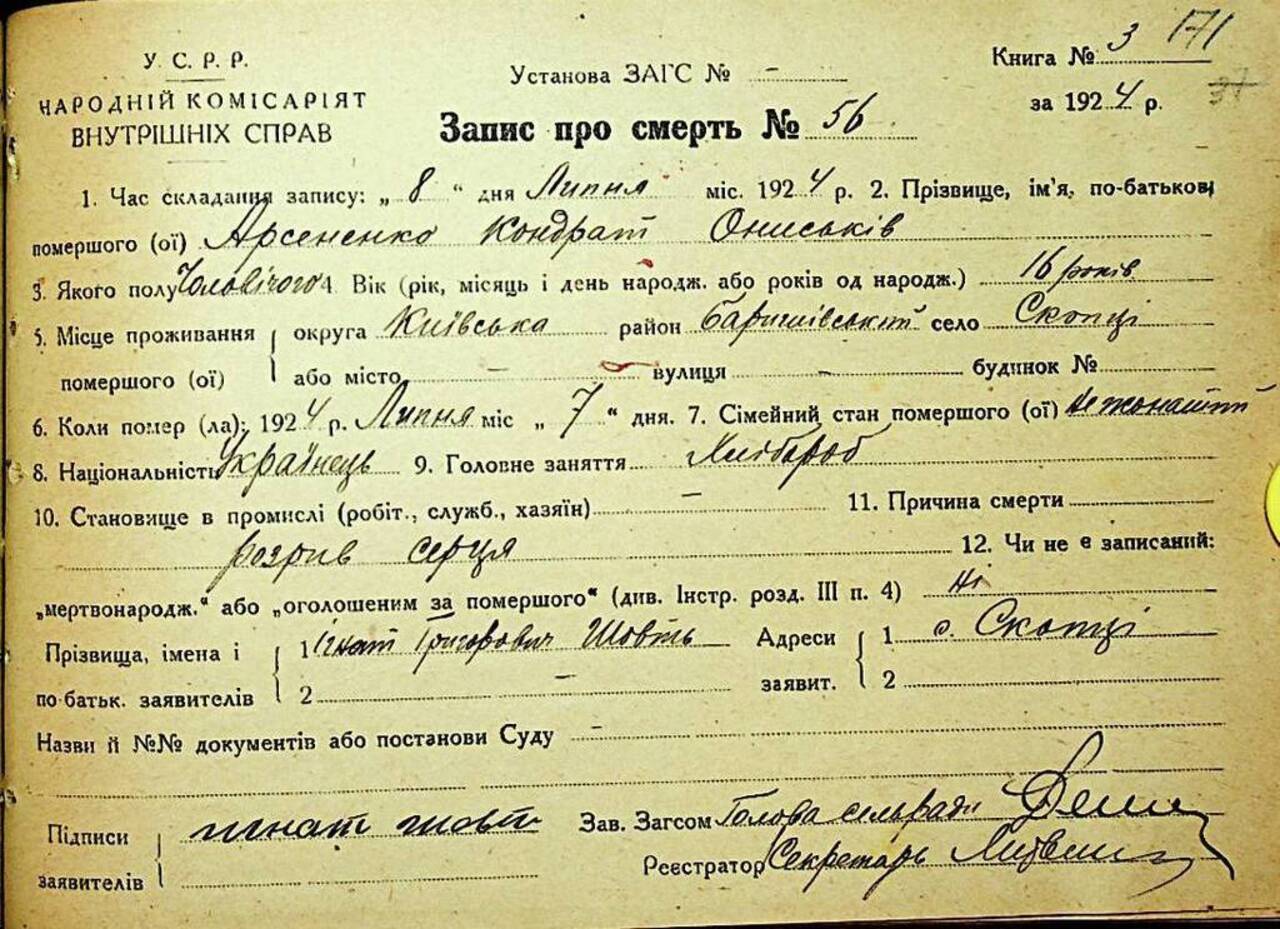 У. С. Р. Р.
НАРОДНІЙ КОМІСАРІЯТ
ВНУТРІШНІХ СПРАВ
Установа ЗАГС № –
Запис про смерть № 56
Книга № 3 171
за 1924 р. 37
1. Час складання запису: „ 8 “ дня Липня міс. 1924 р. 2. Прізвище, ім'я, по-батькові
помершого (ої) Арсененко Кондрат Ониськів
3. Якого полу Чоловічого 4. Вік (рік, місяць і день народж. або років од народж.) 16 років
5. Місце проживання { округа Київська район Баришівський село Скопці
помершого (ої) або місто – вулиця – будинок №
6. Коли помер (ла): 1924 р. Липня міс „ 7 “ дня. 7. Сімейний стан помершого (ої) не жонатий
8. Національність Українець 9. Головне заняття Хлібороб
10. Становище в промислі (робіт., служб., хазяїн) – 11. Причина смерти
розрив серця 12. Чи не є записаний:
„мертвонародж.“ або „оголошеним за помершого“ (див. Інстр. розд. III п. 4) ні
Прізвища, імена і { 1 Ігнат Григорович Шовть Адреси { 1 с. Скопці
по-батьк. заявителів 2 – заявит. 2
Назви й №№ документів або постанови Суду –
Підписи { игнат шовть Зав. Загсом Голова сельради
заявителів Реєстратор Секретарь